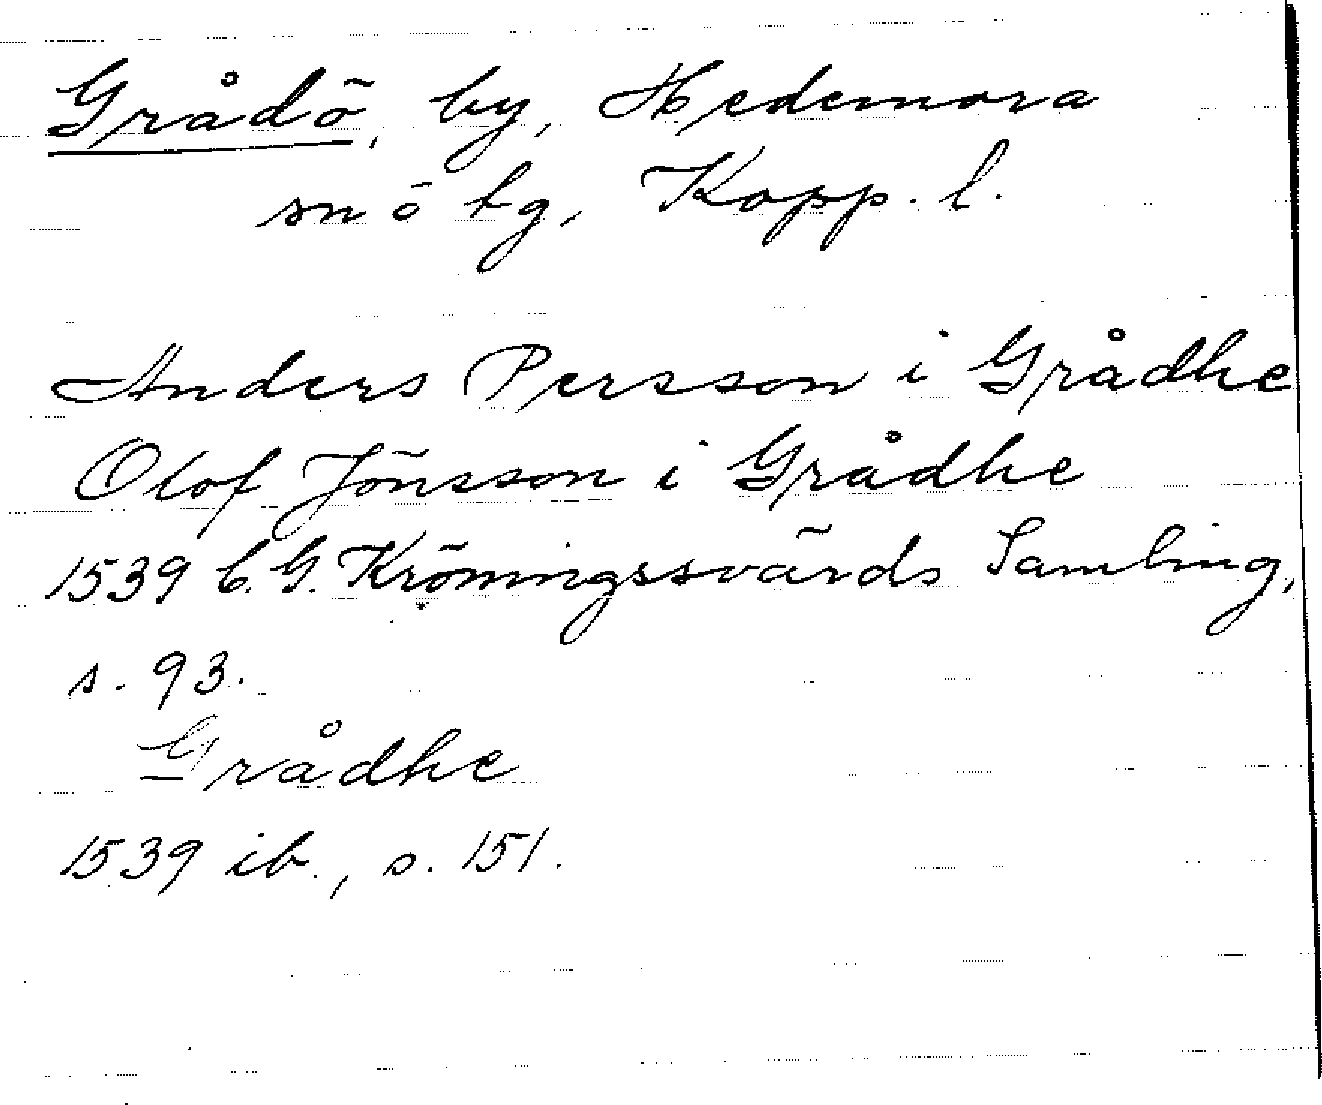 Grådö, by, Hedemora
snö tg, Kopp. l.
Anders Persson i Grådhe
Olof Jönsson i Grådhe
1539 C. G. Kröningssvärds Samling,
s. 93.
Grådhe
1539 ib., s. 151.